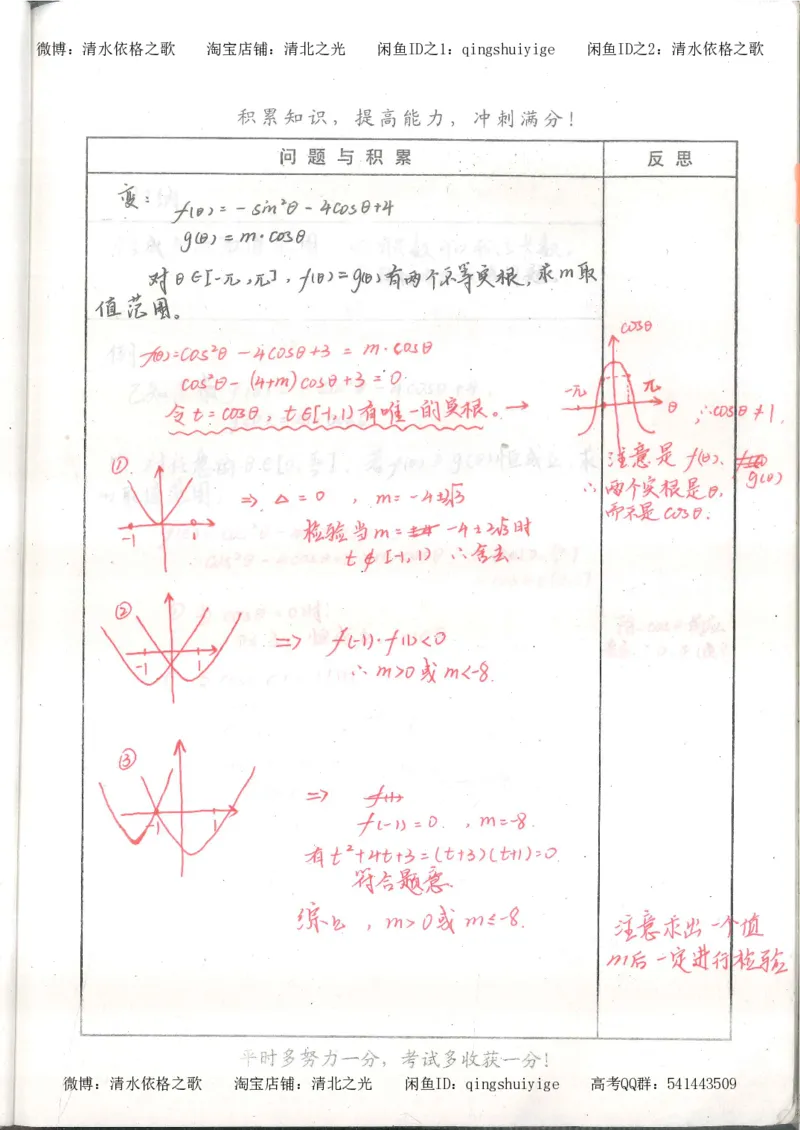 微博：清水依格之歌 淘宝店铺：清北之光 闲鱼ID之1：qingshuiyige 闲鱼ID之2：清水依格之歌
积累知识，提高能力，冲刺满分！
问题与积累 反思
变：
f(θ)=-sin²θ-4cosθ+4
g(θ)=m·cosθ
对θ∈[-元,元]，f(θ)=g(θ)有两个不等实根，求m取
值范围。
f(θ)=cos²θ-4cosθ+3=m·cosθ
cos²θ-(4+m)cosθ+3=0
令t=cosθ，t∈[-1,1)有唯一的实根。→
cosθ
-元 元 θ
∴cosθ≠1.
注意是f(θ)、g(θ)
∴两个实根是θ,
而不是cosθ.
①
-1 1
⇒ △=0 ，m=-4±2√3
检验当m=-4±2√3时
t∉[-1,1) ∴舍去
②
-1 1
⇒ f(-1)·f(1)<0
∴m>0或m<-8.
③
-1 1
⇒
f(-1)=0. ，m=-8.
有t²+4t+3=(t+3)(t+1)=0.
符合题意.
综上，m>0或m≤-8.
注意求出一个值
m后一定进行检验
平时多努力一分，考试多收获一分！
微博：清水依格之歌 淘宝店铺：清北之光 闲鱼ID：qingshuiyige 高考QQ群：541443509